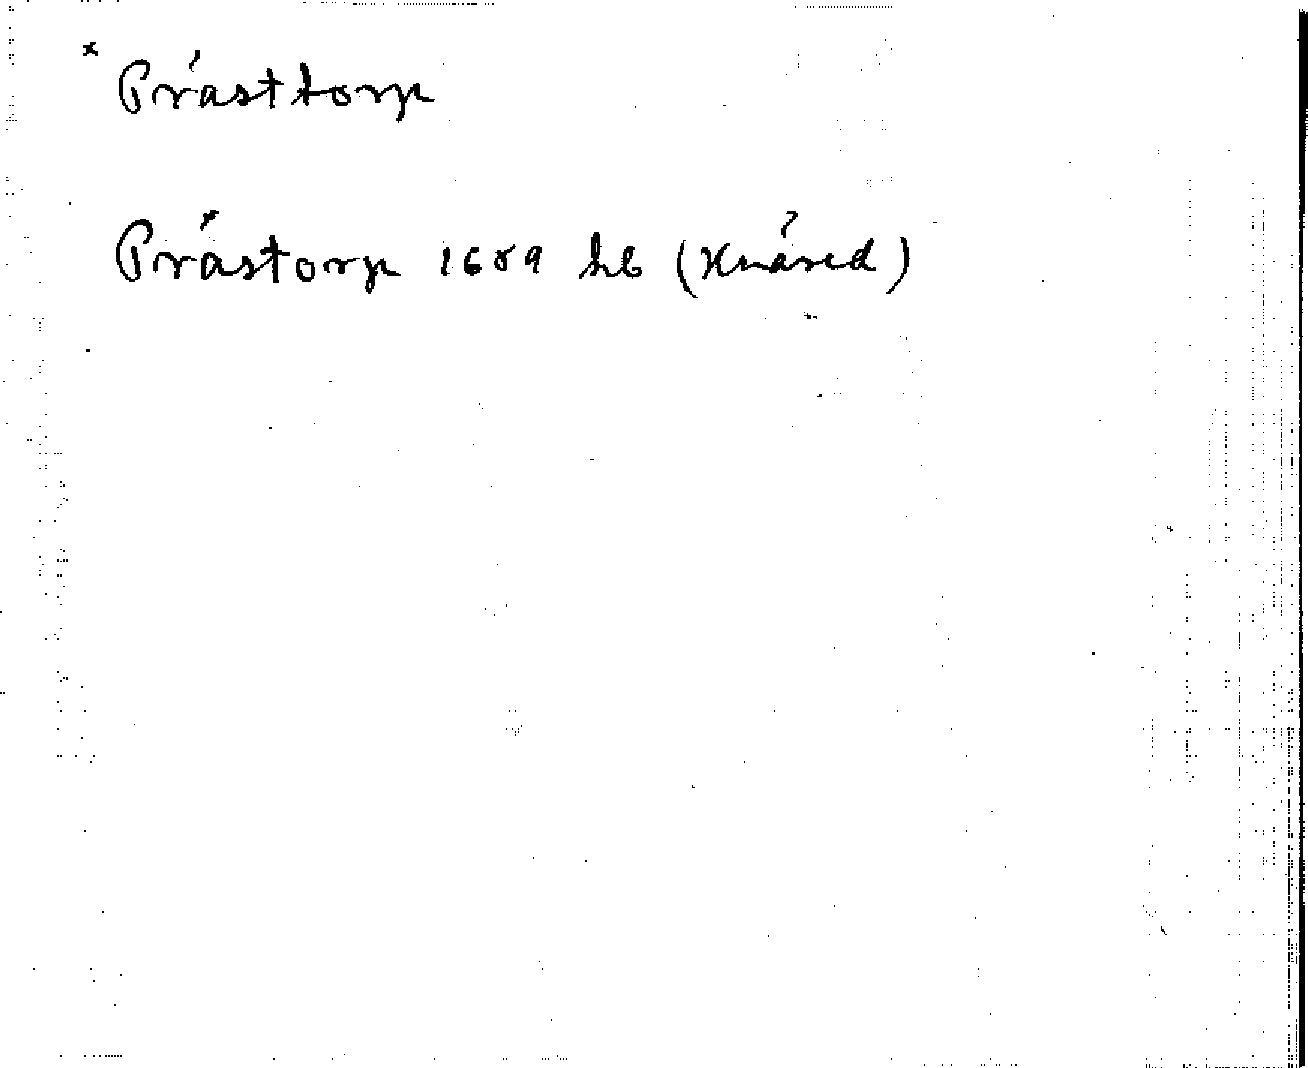 x Prästtorp
Prästorp 1689 hb (Knäred)